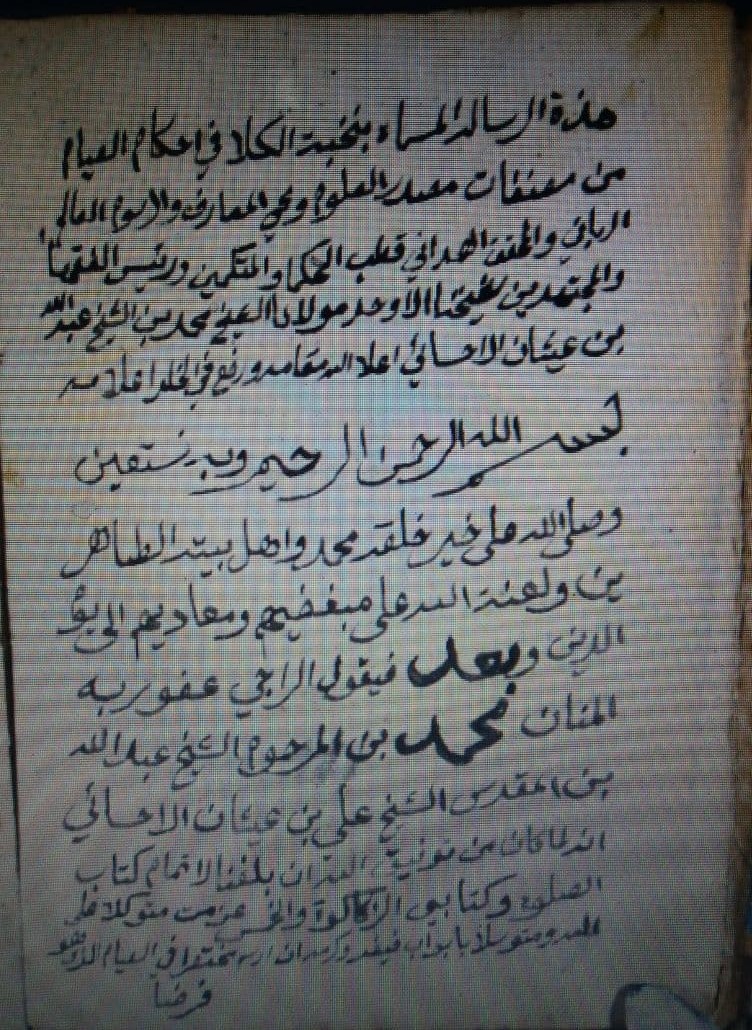 هذه الرسالة المسماة بنخبة الكلام في احكام الصيام
من مصنفات معدن العلوم ومحيي المعارف والرسوم العالم
الرباني والمحقق الصمداني قطب الحكماء والمتكلمين ورئيس الفقهاء
والمجتهدين شيخنا الاوحد مولانا الشيخ محمد بن الشيخ عبد الله
بن عيثان الاحسائي اعلا الله مقامه ورفع في الخلد اعلامه
بسم الله الرحمن الرحيم وبه نستعين
وصلى الله على خير خلقه محمد واهل بيته الطاهر
ين ولعنة الله على مبغضيهم ومعاديهم الى يوم
الدين وبعد فيقول الراجي عفو ربه
المنان محمد بن المرحوم الشيخ عبد الله
بن المقدس الشيخ علي بن عيثان الاحسائي
انه لما كان من توفيق الله ان بلغنا لاتمام كتاب
الصلوة وكتابي الزكاة والخمس عزمت متوكلا على
الله ومتوسلا بابواب فيضه وكرمه ان ارسم مختصرا في الصيام الذي هو
فرضا